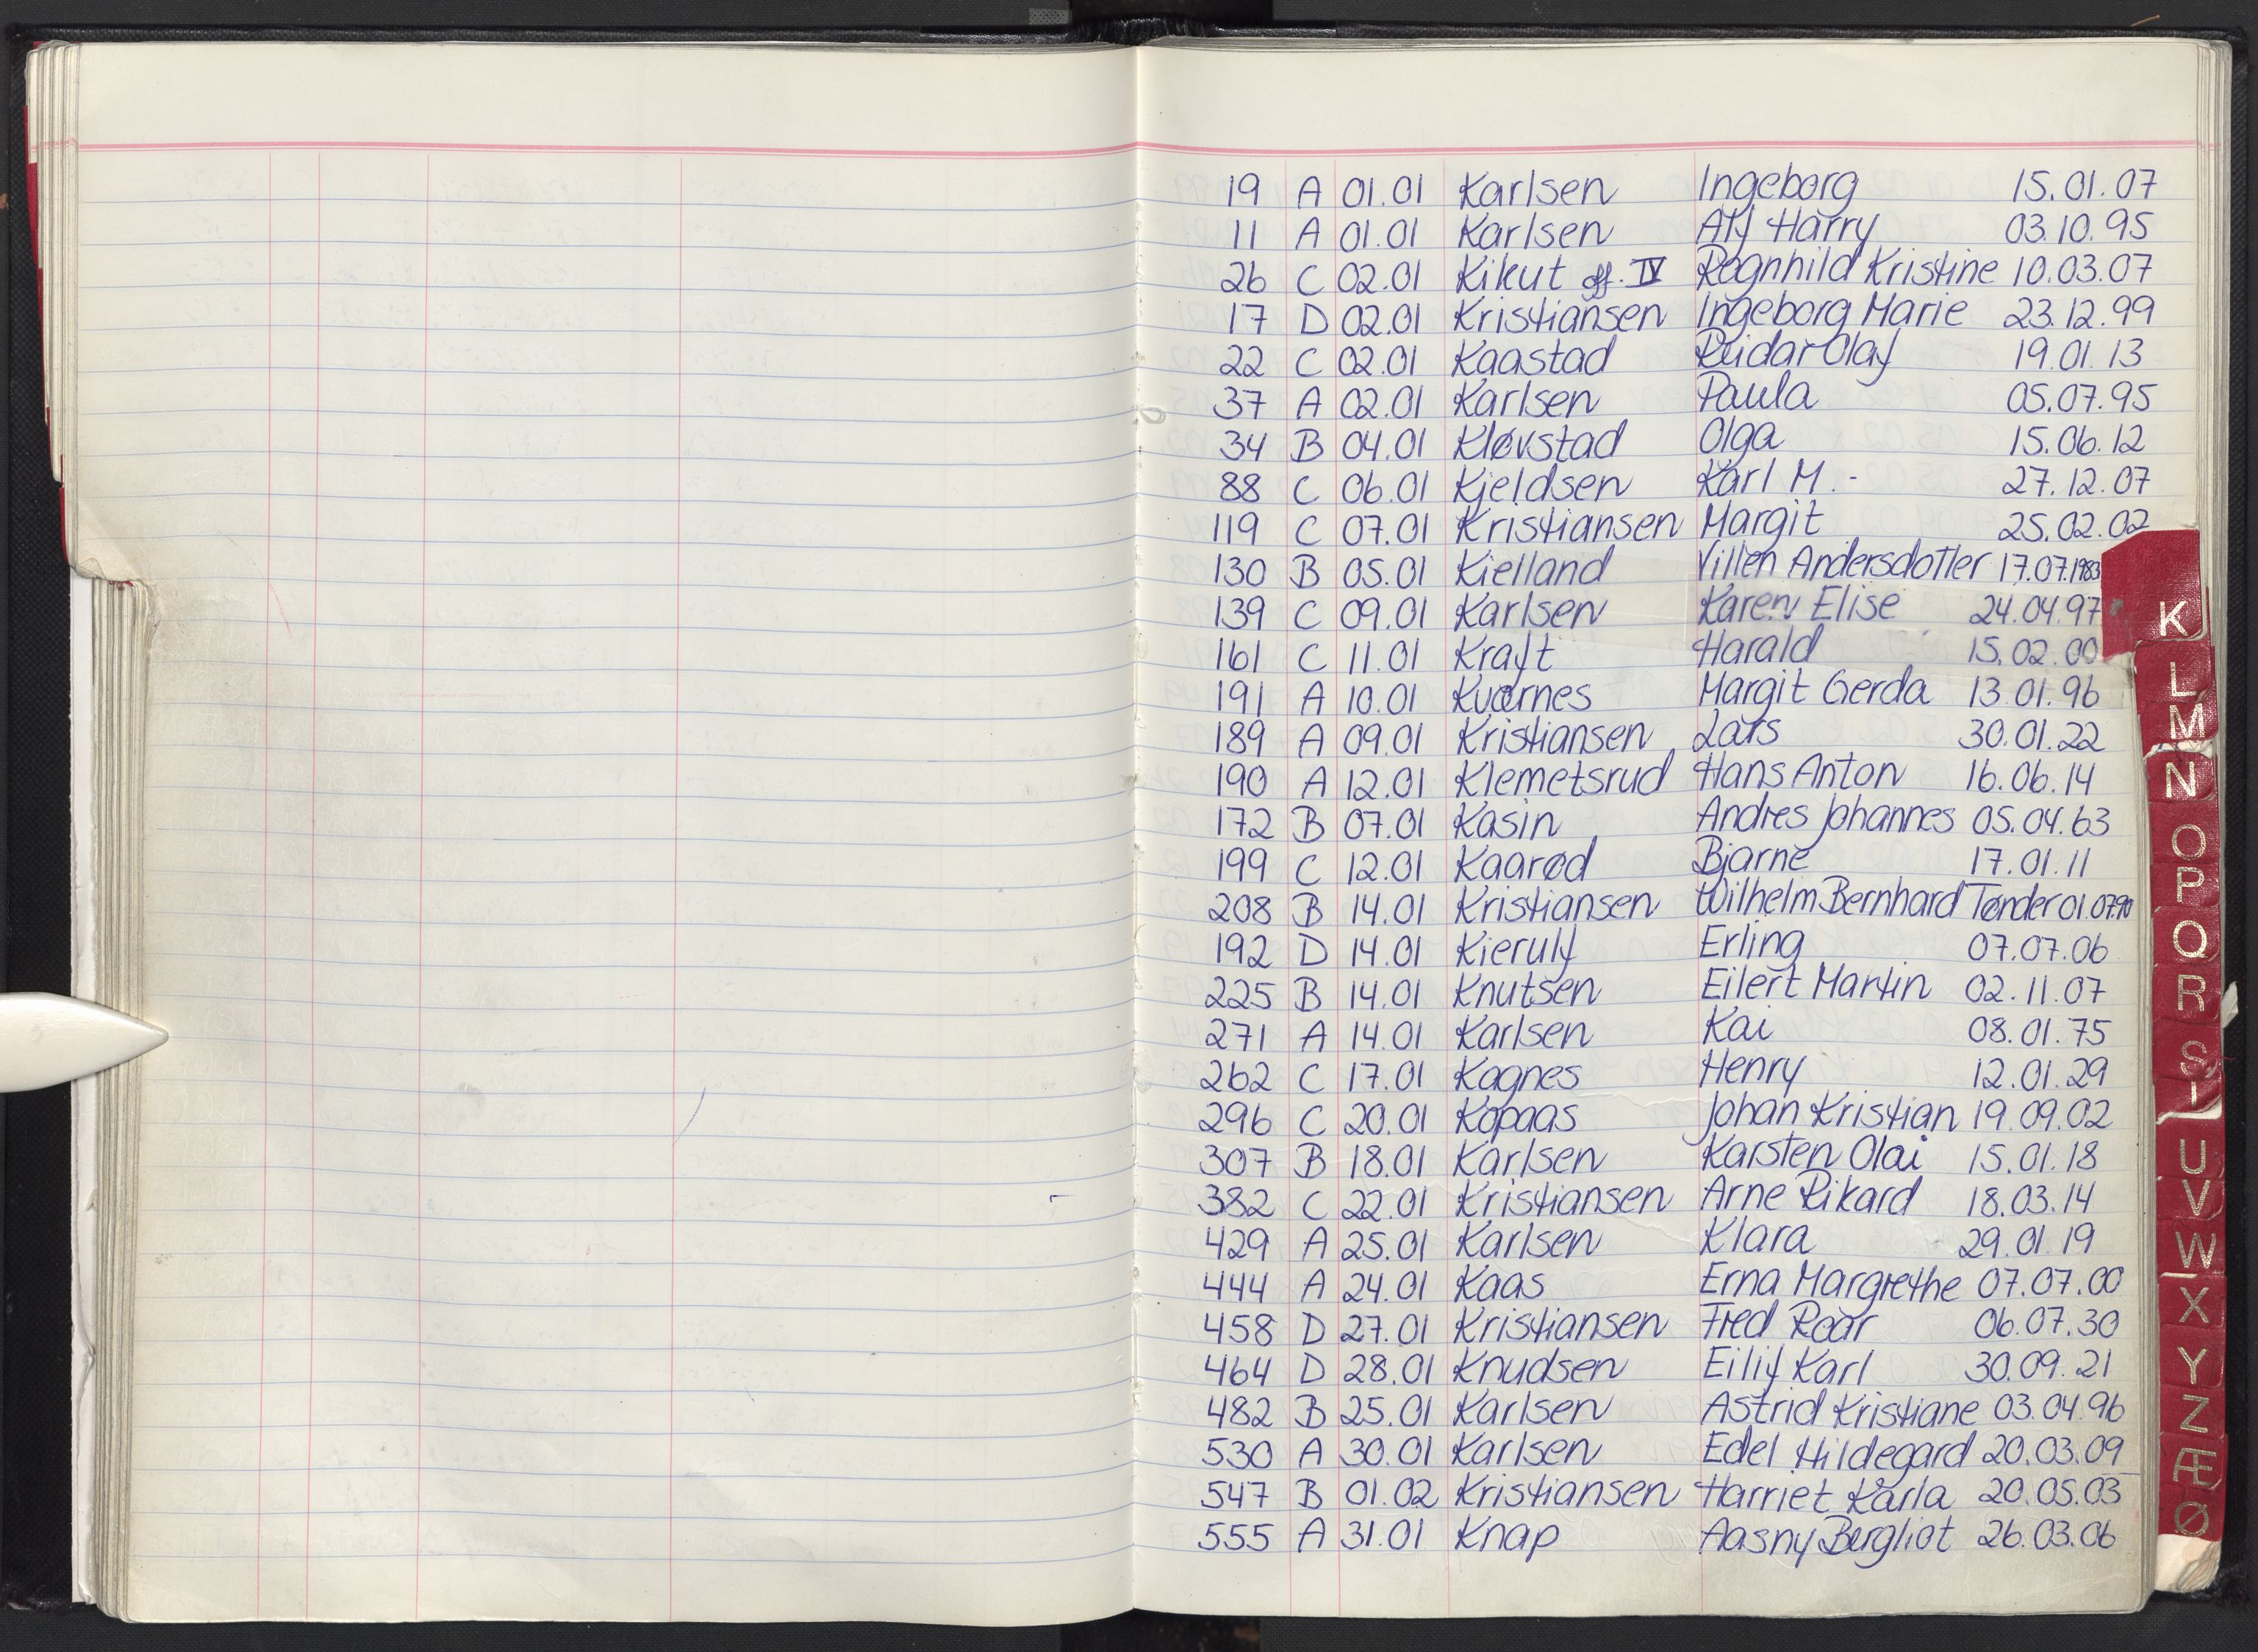 19 A 01.01 Karlsen Ingeborg 15.01.07
11 A 01.01 Karlsen Alf Harry 03.10.95
26 C 02.01 Kikut off. IV Ragnhild Kristine 10.03.07
17 D 02.01 Kristiansen Ingeborg Marie 23.12.99
22 C 02.01 Kaastad Reidar Olaf 19.01.13
37 A 02.01 Karlsen Paula 05.07.95
34 B 04.01 Kløvstad Olga 15.06.12
88 C 06.01 Kjeldsen Karl M.- 27.12.07
119 C 07.01 Kristiansen Margit 25.02.02
130 B 05.01 Kielland Villen Andersdotter 17.07.1983
139 C 09.01 Karlsen Karen Elise 24.04.97
161 C 11.01 Kraft Harald 15.02.00
191 A 10.01 Kværnes Margit Gerda 13.01.96
189 A 09.01 Kristiansen Lars 30.01.22
190 A 12.01 Klemetsrud Hans Anton 16.06.14
172 B 07.01 Kasin Andres Johannes 05.04.63
199 C 12.01 Kaarød Bjarne 17.01.11
208 B 14.01 Kristiansen Wilhelm Bernhard Tønder 01.07.90
192 D 14.01 Kierulf Erling 07.07.06
225 B 14.01 Knutsen Eilert Martin 02.11.07
271 A 14.01 Karlsen Kai 08.01.75
262 C 17.01 Kagnes Henry 12.01.29
296 C 20.01 Kopaas Johan Kristian 19.09.02
307 B 18.01 Karlsen Karsten Olai 15.01.18
382 C 22.01 Kristiansen Arne Rikard 18.03.14
429 A 25.01 Karlsen Klara 29.01.19
444 A 24.01 Kaas Erna Margrethe 07.07.00
458 D 27.01 Kristiansen Fred Roar 06.07.30
464 D 28.01 Knudsen Eilif Karl 30.09.21
482 B 25.01 Karlsen Astrid Kristiane 03.04.96
530 A 30.01 Karlsen Edel Hildegard 20.03.09
547 B 01.02 Kristiansen Harriet Karla 20.05.03
555 A 31.01 Knap Aasny Bergliot 26.03.06
K
L
M
N
O
P
Q
R
S
T
U
V
W
X
Y
Z
Æ
Ø